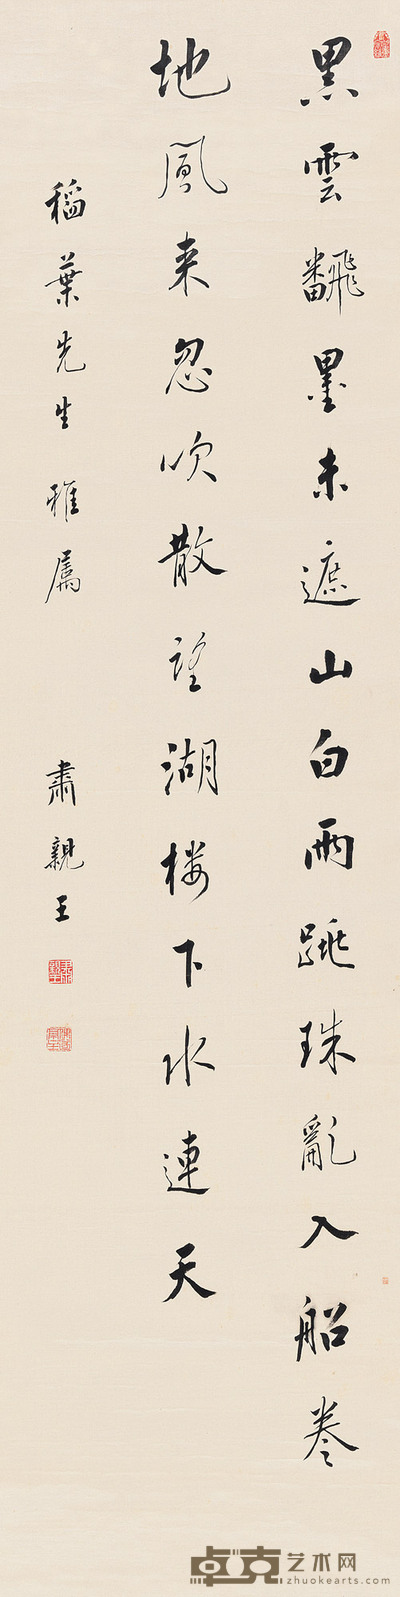 黑雲飜墨未遮山白雨跳珠亂入船卷
地風来忽吹散望湖楼下水連天
稲葉先生雅属
肅親王
卓克艺术网
www.zhuokearts.com